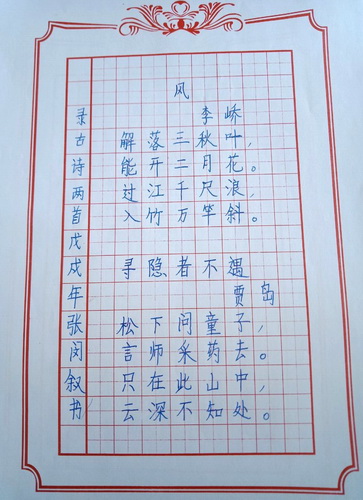 风
李峤
解落三秋叶,
能开二月花。
过江千尺浪,
入竹万竿斜。
寻隐者不遇
贾岛
松下问童子,
言师采药去。
只在此山中,
云深不知处。
录古诗两首戊戌年张闵叙书